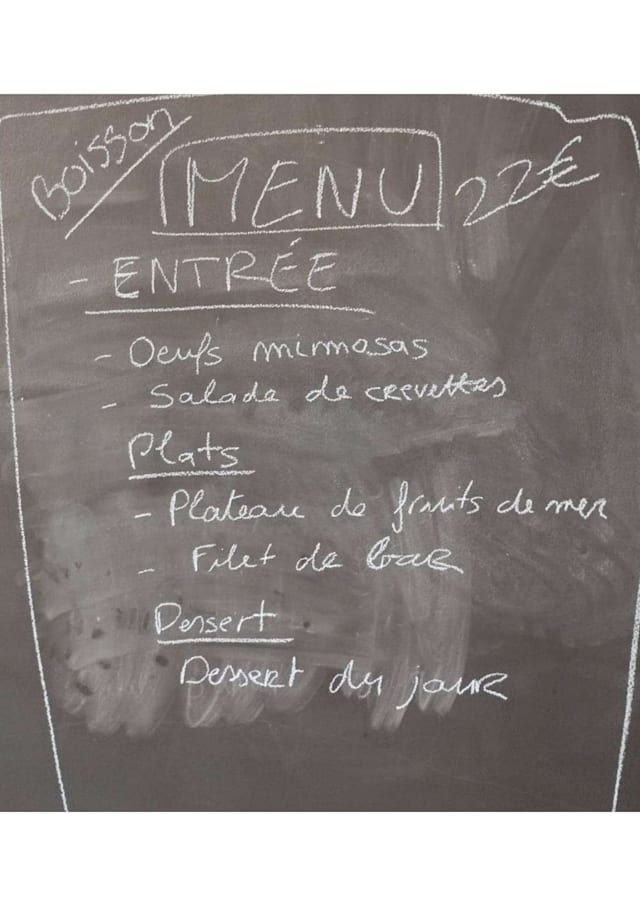 Boisson
MENU 22€
- ENTRÉE
- Oeufs mimosas
- Salade de crevettes
Plats
- Plateau de fruits de mer
- Filet de bar
Dessert
Dessert du jour